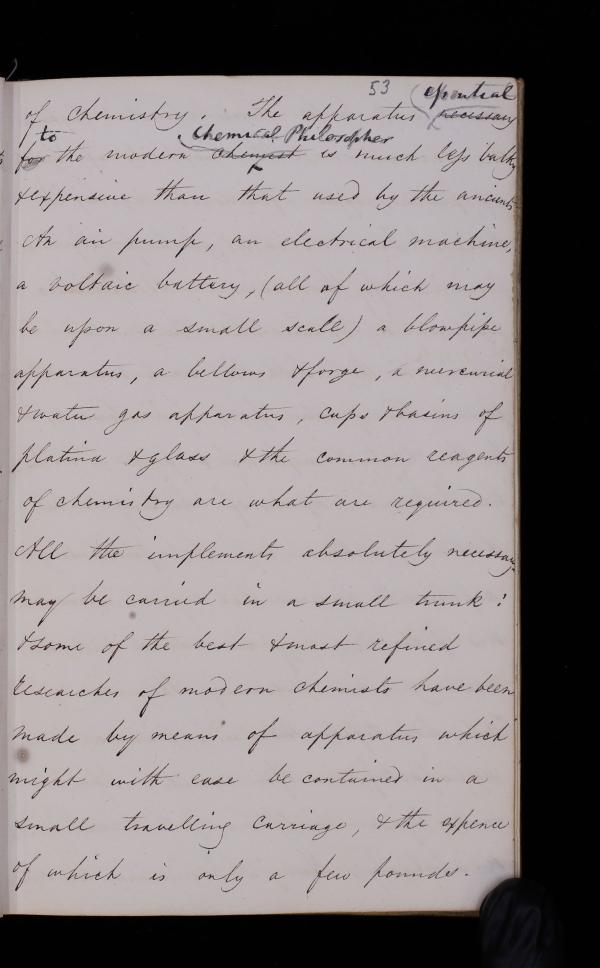 53 essential
of chemistry. The apparatus necessary
to chemical Philosopher
for the modern chemist is much less bulky
& expensive than that used by the ancients
An air pump, an electrical machine,
a voltaic battery, (all of which may
be upon a small scale) a blowpipe
apparatus, a bellows & forge, a mercurial
& water gas apparatus, cups & basins of
platina & glass & the common reagents
of chemistry are what are required.
All the implements absolutely necessary
may be carried in a small trunk:
& some of the best & most refined
researches of modern chemists have been
made by means of apparatus which
might with ease be contained in a
small travelling carriage, & the expence
of which is only a few pounds.